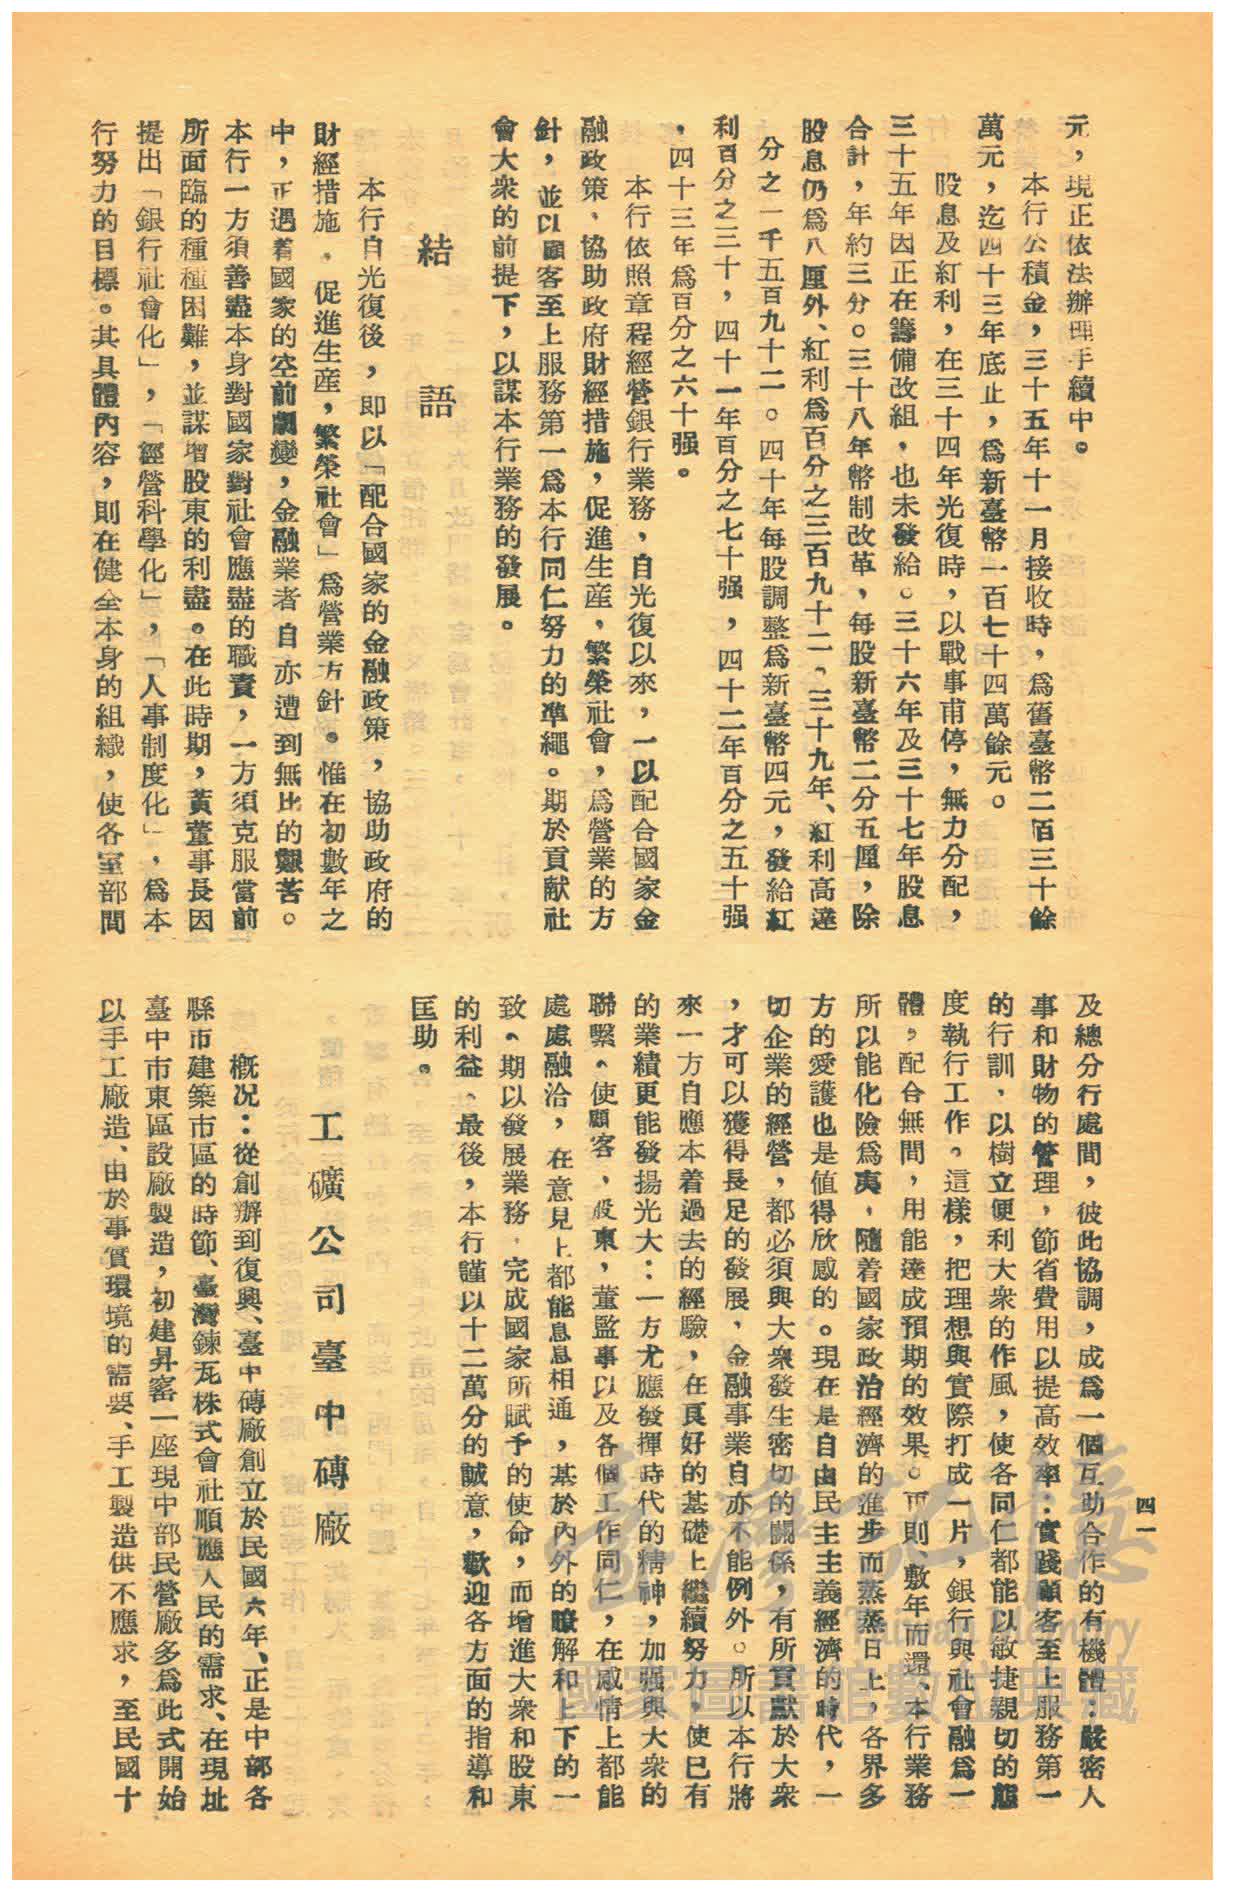 元，現正依法辦理手續中。
本行公積金，三十五年十一月接收時，爲舊臺幣二百三十餘
萬元，迄四十三年底止，爲新臺幣一百七十四萬餘元。
股息及紅利，在三十四年光復時，以戰事甫停，無力分配，
三十五年因正在籌備改組，也未發給。三十六年及三十七年股息
合計，年約三分。三十八年幣制改革，每股新臺幣二分五厘，除
股息仍爲八厘外、紅利爲百分之三百九十二、三十九年、紅利高達
分之一千五百九十二。四十年每股調整爲新臺幣四元，發給紅
利百分之三十，四十一年百分之七十强，四十二年百分之五十强
，四十三年爲百分之六十强。
本行依照章程經營銀行業務，自光復以來，一以配合國家金
融政策、協助政府財經措施，促進生産，繁榮社會，爲營業的方
針，並以顧客至上服務第一爲本行同仁努力的準繩。期於貢献社
會大衆的前提下，以謀本行業務的發展。
結語
本行自光復後，即以「配合國家的金融政策，協助政府的
財經措施、促進生産，繁榮社會」爲營業方針。惟在初數年之
中，正遇着國家的空前劇變，金融業者自亦遭到無比的艱苦。
本行一方須善盡本身對國家對社會應盡的職責，一方須克服當前
所面臨的種種困難，並謀增股東的利益。在此時期，黃董事長因
提出「銀行社會化」，「經營科學化」，「人事制度化」，爲本
行努力的目標。其具體內容，則在健全本身的組織，使各室部間
及總分行處間，彼此協調，成爲一個互助合作的有機體：嚴密人
事和財物的管理，節省費用以提高效率：實踐顧客至上服務第一
的行訓，以樹立便利大衆的作風，使各同仁都能以敏捷親切的態
度執行工作。這樣，把理想與實際打成一片，銀行與社會融爲一
體，配合無間，用能達成預期的效果。否則，數年而還、本行業務
所以能化險爲夷，隨着國家政治經濟的進步而蒸蒸日上，各界多
方的愛護也是值得欣感的。現在是自由民主主義經濟的時代，一
切企業的經營，都必須與大衆發生密切的關係，有所貢獻於大衆
，才可以獲得長足的發展，金融事業自亦不能例外。所以本行將
來一方自應本着過去的經驗，在良好的基礎上繼續努力，使已有
的業績更能發揚光大：一方尤應發揮時代的精神，加强與大衆的
聯繫、使顧客，股東，董監事以及各個工作同仁，在感情上都能
處處融洽，在意見上都能息息相通，基於內外的瞭解和上下的一
致、期以發展業務，完成國家所賦予的使命，而增進大衆和股東
的利益、最後，本行謹以十二萬分的誠意，歡迎各方面的指導和
匡助。
工礦公司臺中磚廠
概况：從創辦到復興、臺中磚廠創立於民國六年、正是中部各
縣市建築市區的時節、臺灣鍊瓦株式會社順應人民的需求、在現址
臺中市東區設廠製造，初建昇窰一座現中部民營廠多爲此式開始
以手工廠造、由於事實環境的需要、手工製造供不應求，至民國十
四一
臺灣記憶
Taiwan Memory
國家圖書館數位典藏